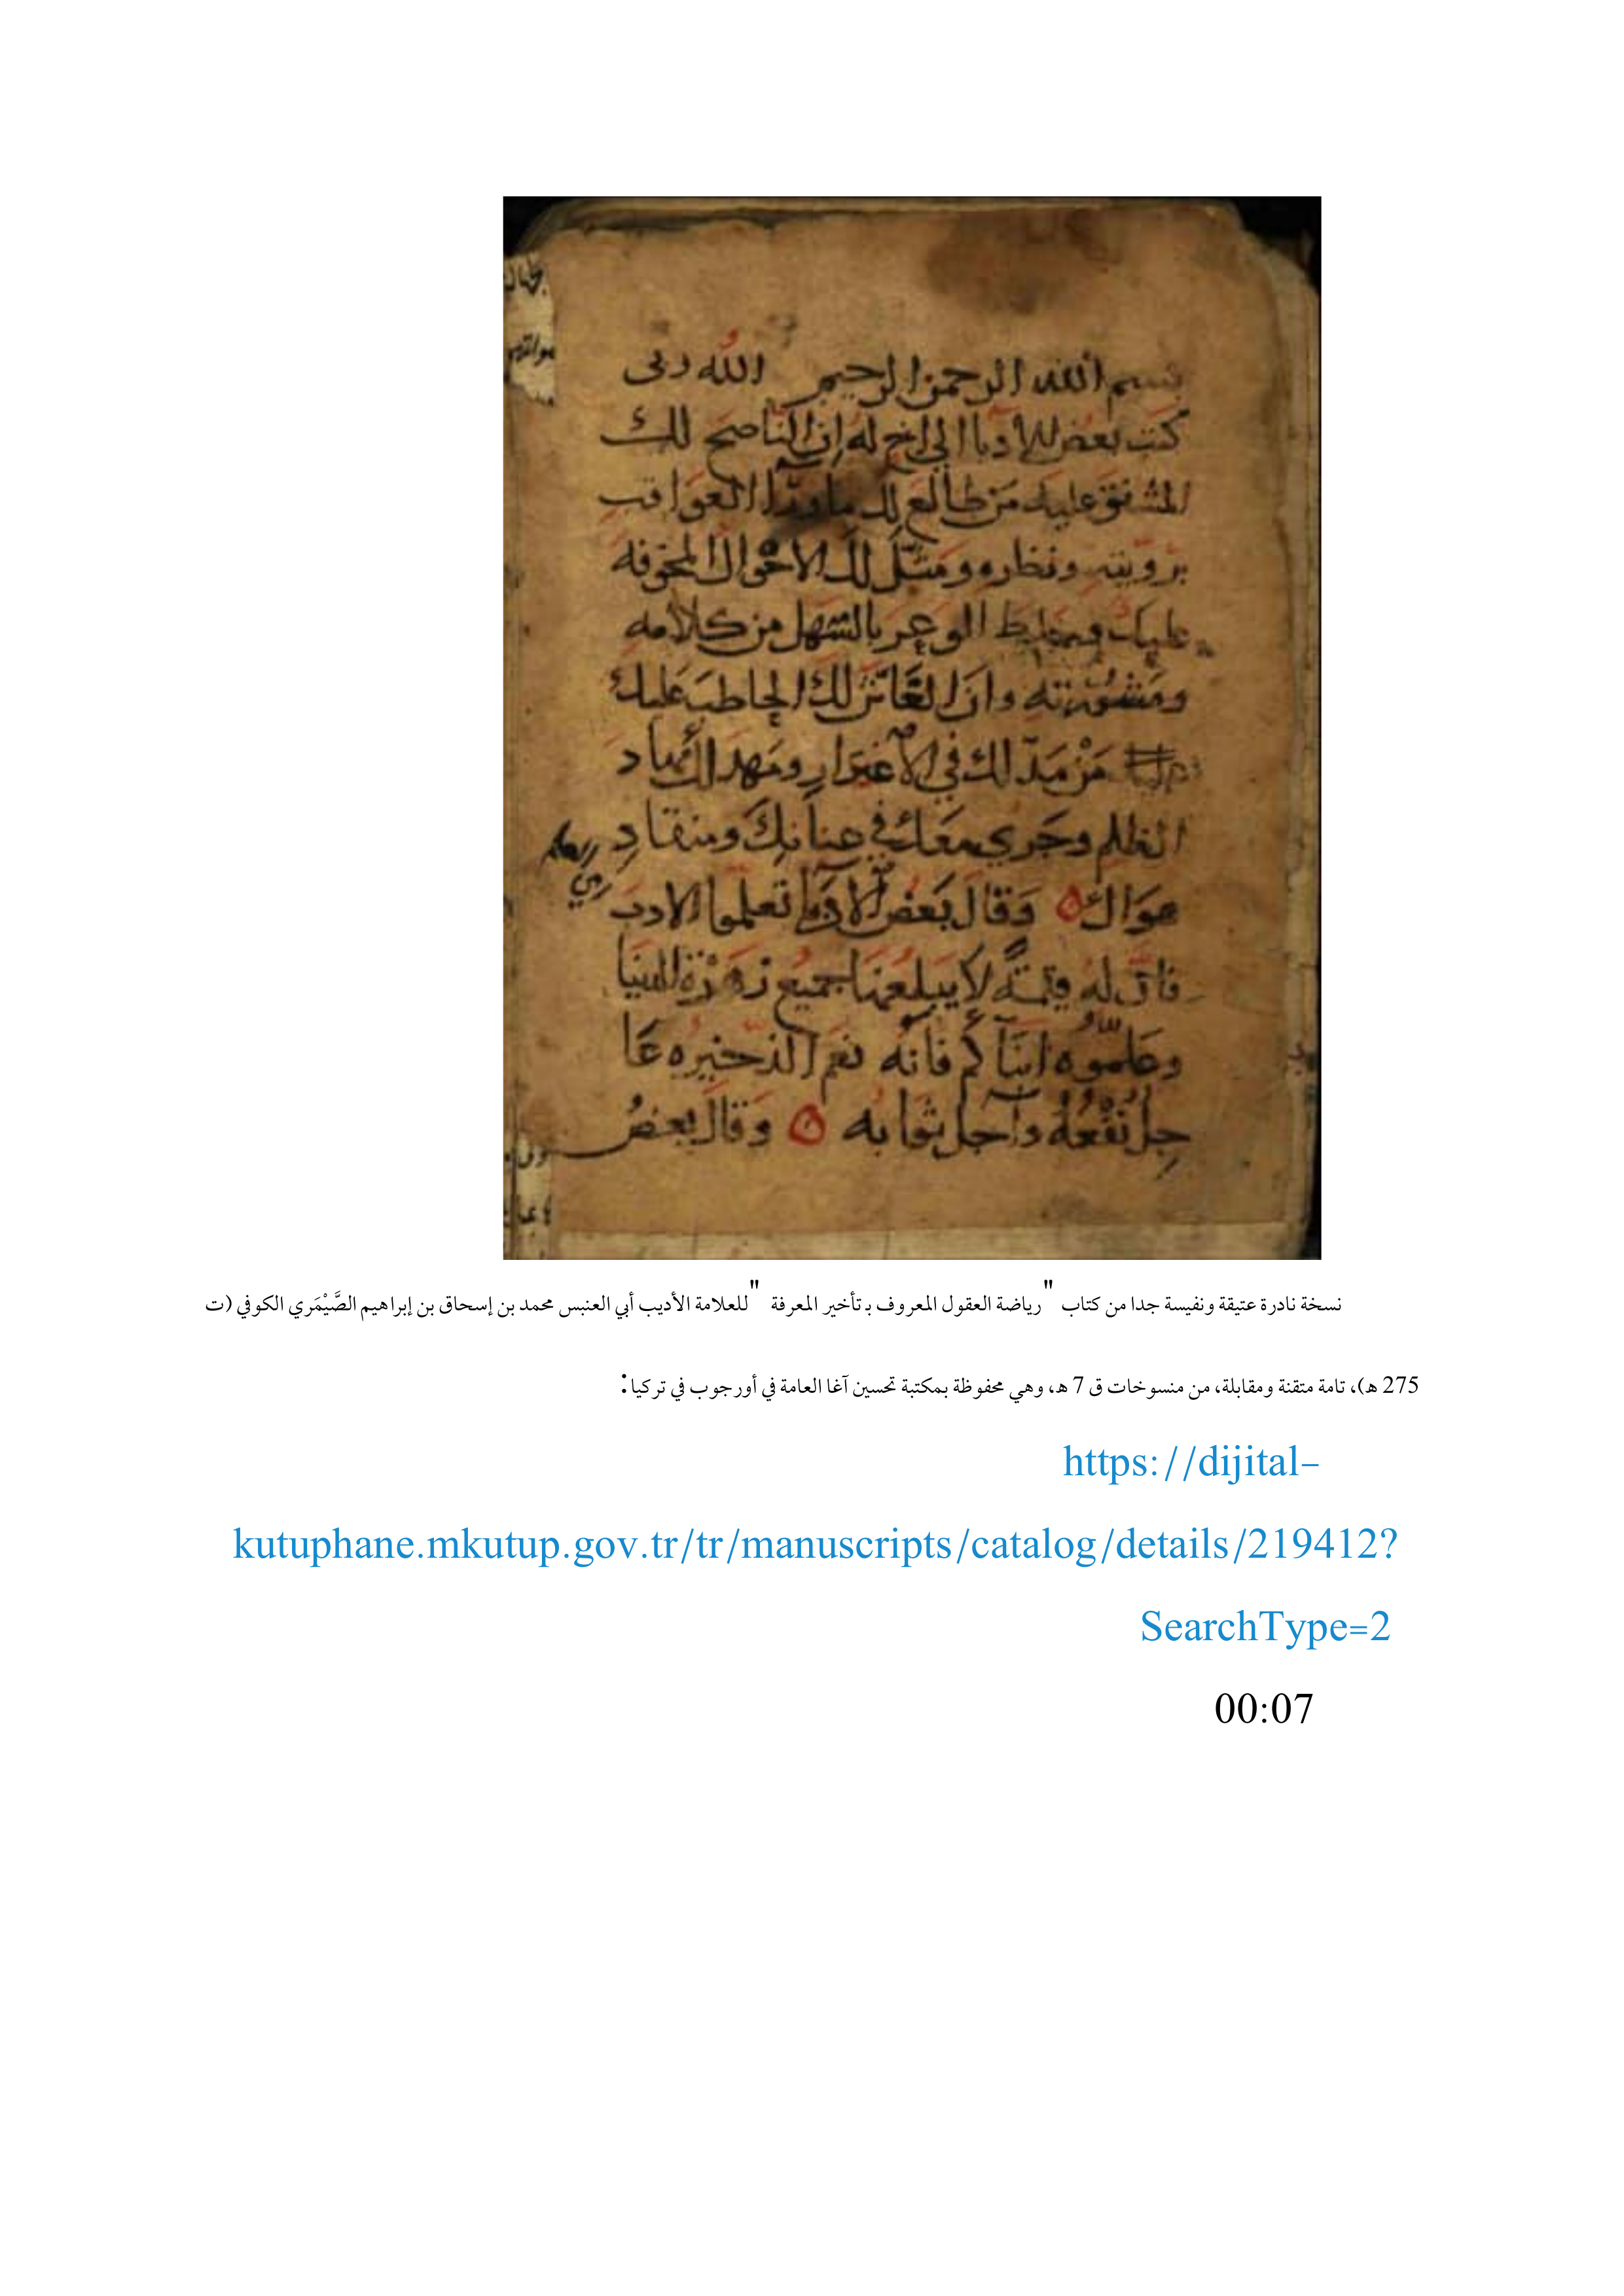 بسم الله الرحمن الرحيم الله ربى
كتب بعض للادبا الى اخ له ان الناصح لك
المشفق عليك من طالع لك ما ورا العواقب
برويته ونظره ومثل لك الاحوال المخوفه
عليك وخليط الوعر بالسهل من كلامه
ومشورته وان الغاش لك الحاطب عليك
من مد لك في الاغترار ومهد لك مهاد
الظلم وجرى معك في عنانك ومنقاد
هواك وقال بعض الادبا تعلموا الادب
فان له قيمة لا يبلغها جميع زهرة الدنيا
وعلموه ابناكم فانه نعم الذخيره عا
جل نفعه وآجل ثوابه وقال بعض
نسخة نادرة عتيقة ونفيسة جدا من كتاب "رياضة العقول المعروف بـ تأخير المعرفة " للعلامة الأديب أبي العنبس محمد بن إسحاق بن إبراهيم الصَّيْمَري الكوفي (ت
275 هـ)، تامة متقنة ومقابلة، من منسوخات ق 7 هـ، وهي محفوظة بمكتبة تحسين آغا العامة في أورجوب في تركيا:
https://dijital-
kutuphane.mkutup.gov.tr/tr/manuscripts/catalog/details/219412?
SearchType=2
00:07